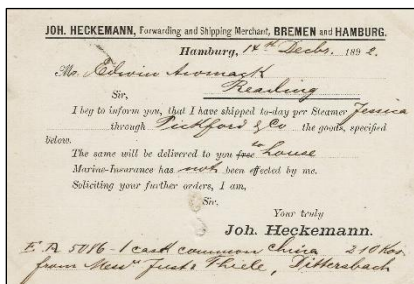 JOH. HECKEMANN, Forwarding and Shipping Merchant, BREMEN and HAMBURG.
Hamburg, 14th Decbr. 1892.
Mr. Edwin
Reading
Sir,
I beg to inform you, that I have shipped to-day per Steamer Jessica
through Pickford & Co the goods, specified
below.
The same will be delivered to you free to house
Marine-Insurance has not been effected by me.
Soliciting your further orders, I am,
Sir,
Your truly
Joh. Heckemann.
5086 - 1 cask common China 210 Kos.
from Messrs Just & Thiele, Dittersbach